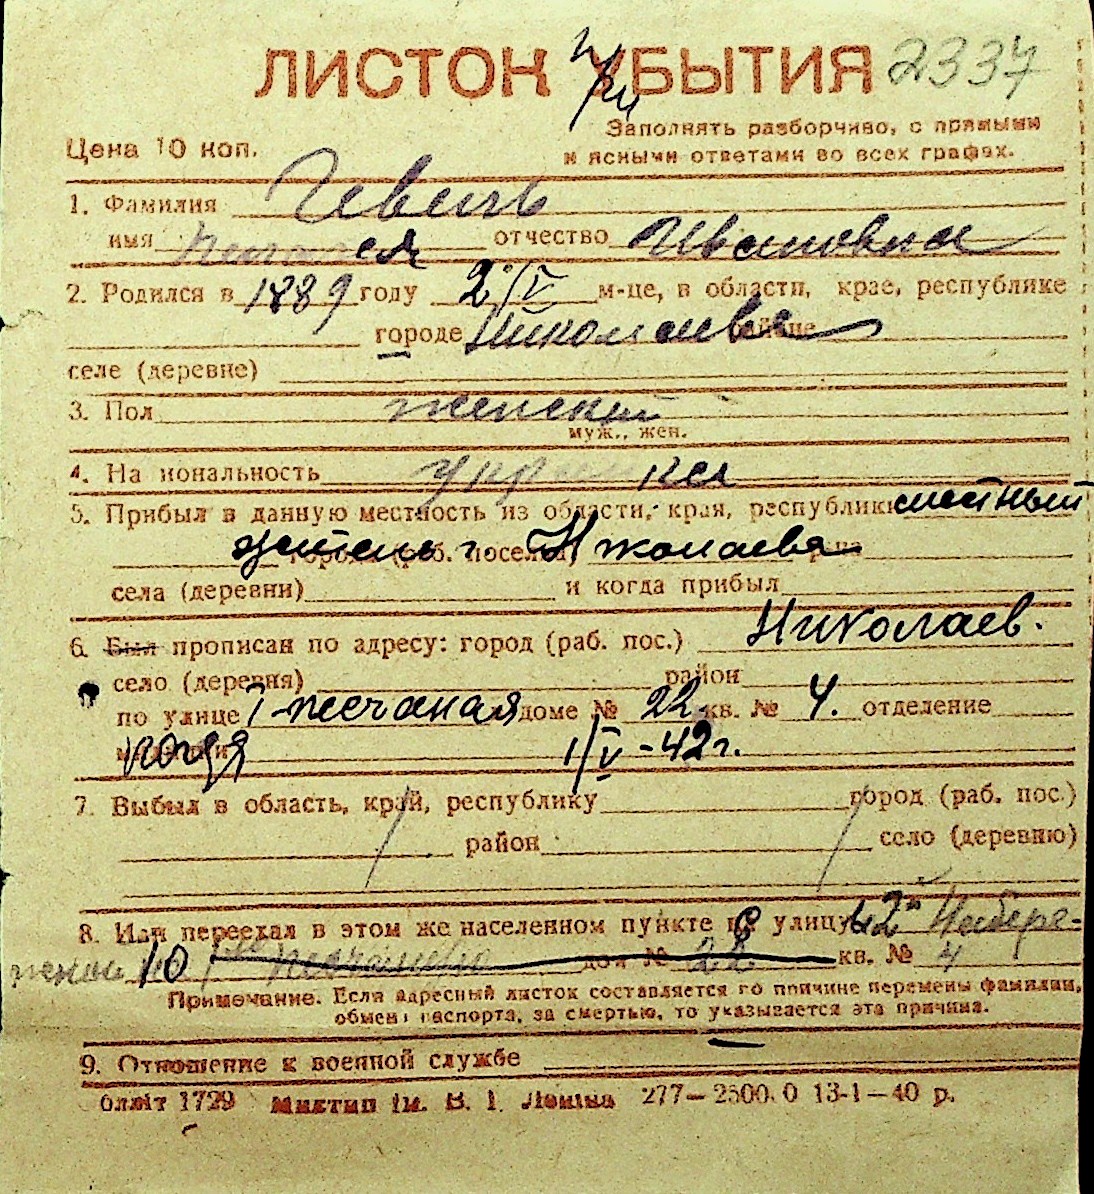 ЛИСТОК УБЫТИЯ 2337
Цена 10 коп.
Заполнять разборчиво, с прямыми
и ясными ответами во всех графах.
1. Фамилия
имя отчество Ивановна
2. Родился в 1889 году 2/V м-це, в области, крае, республике
городе Николаеве районе
селе (деревне)
3. Пол женский
муж., жен.
4. Национальность украинка
5. Прибыл в данную местность из области, края, республики местный
житель г. Николаева
села (деревни) и когда прибыл
6. Был прописан по адресу: город (раб. пос.) Николаев.
село (деревня) район
по улице 1-песчаная доме № 22 кв. № 4. отделение
милиции когда 1/V-42 г.
7. Выбыл в область, край, республику город (раб. пос.)
район село (деревню)
8. Или переехал в этом же населенном пункте на улицу Набере-
жной 10 дом № 22 кв. № 4
Примечание. Если адресный листок составляется по причине перемены фамилии,
обмена паспорта, за смертью, то указывается эта причина.
9. Отношение к военной службе
Обллiт 1729 Миктип iм. В. I. Ленiна 277—2500.0 13-1—40 р.